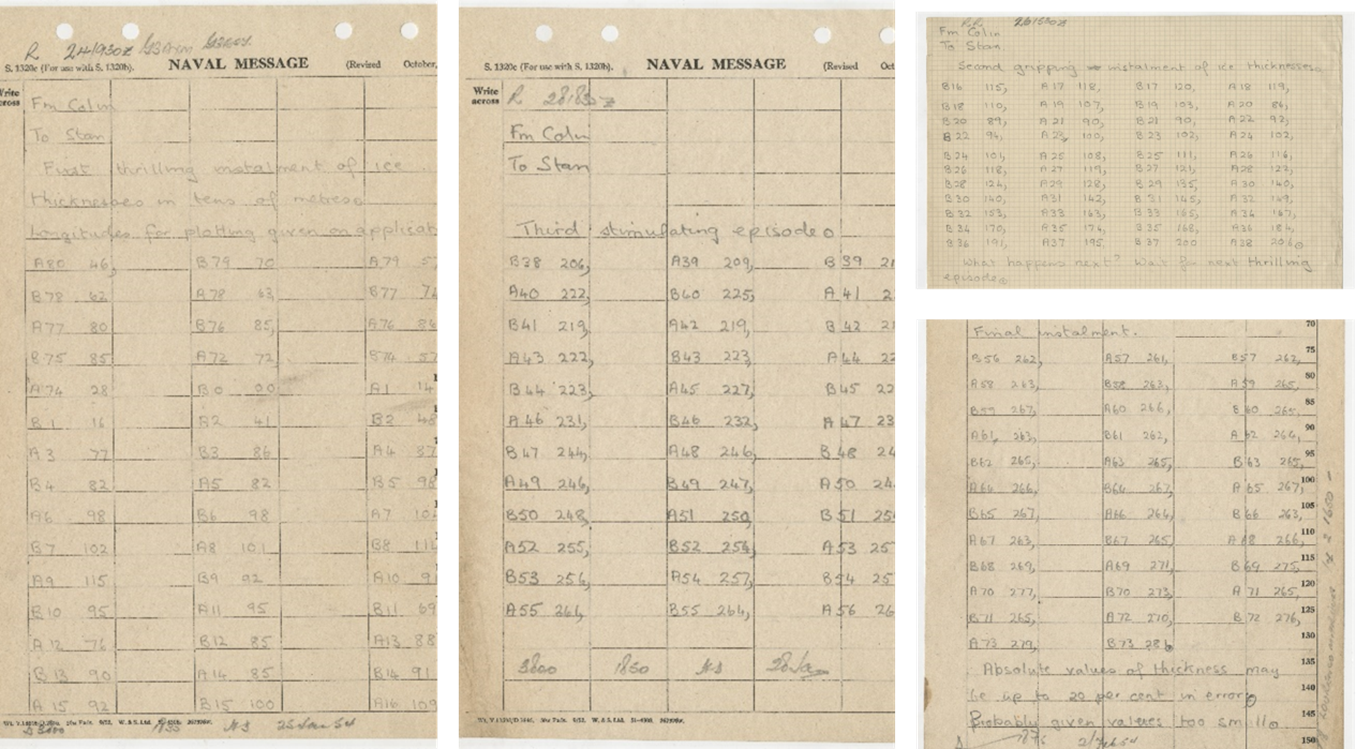 R 241930z
S. 1320c (For use with S. 1320b). NAVAL MESSAGE (Revised October,
Write across
Fm Colin
To Stan
First thrilling instalment of ice
thicknesses in tens of metres.
Longitudes for plotting given on applicat
A80 46, B79 70 A79
B78 62 A78 63, B77
A77 80 B76 85, A76 86
B75 85 A72 72, B74 57
A74 28 B0 00 A1 14
B1 16 B2 41 B2 48
A3 77 B3 86 A4 87
B4 82 A5 82 B5 98
A6 98 B6 98 A7
B7 102 A8 101 B8
A9 115 B9 92 A10
B10 95 A11 95 B11 69
A12 76 B12 85 A13 88
B13 90 A14 85 B14 91
A15 92 B15 100 A16 109
S. 1320c (For use with S. 1320b). NAVAL MESSAGE (Revised Oct
Write across
R 281830z
Fm Colin
To Stan
Third stimulating episode
B38 206, A39 209, B39 21
A40 222, B40 225, A41 2
B41 219, A42 219, B42 21
A43 222, B43 223, A44 22
B44 223, A45 227, B45 22
A46 231, B46 232, A47 23
B47 244, A48 246, B48 24
A49 246, B49 247, A50 24
B50 248, A51 250, B51 25
A52 255, B52 256, A53 25
B53 256, A54 257, B54 25
A55 264, B55 264, A56 26
3800 1850 28 Jan
Fm Colin
To Stan
Second gripping instalment of ice thicknesses.
B16 115, A17 118, B17 120, A18 119,
B18 110, A19 107, B19 103, A20 86,
B20 89, A21 90, B21 90, A22 92,
B22 94, A23 100, B23 102, A24 102,
B24 101, A25 108, B25 111, A26 116,
B26 118, A27 119, B27 121, A28 122,
B28 124, A29 128, B29 135, A30 140,
B30 140, A31 142, B31 145, A32 149,
B32 153, A33 163, B33 165, A34 167,
B34 170, A35 174, B35 168, A36 184,
B36 191, A37 195, B37 200 A38 206
What happens next? Wait for next thrilling
episode
70
Final instalment.
75
B56 262, A57 261, B57 262,
80
A58 263, B58 263, A59 265,
85
B59 267, A60 266, B60 265,
90
A61 263, B61 262, A62 264,
95
B62 265, A63 265, B63 265,
100
A64 266, B64 267, A65 267,
105
B65 267, A66 264, B66 263,
110
A67 263, B67 265, A68 266,
115
B68 269, A69 271, B69 275,
120
A70 277, B70 273, A71 265,
125
B71 265, A72 270, B72 276,
130
A73 279, B73 286
135
Absolute values of thickness may
140
be up to 20 per cent in error
145
Probably given values too small
150